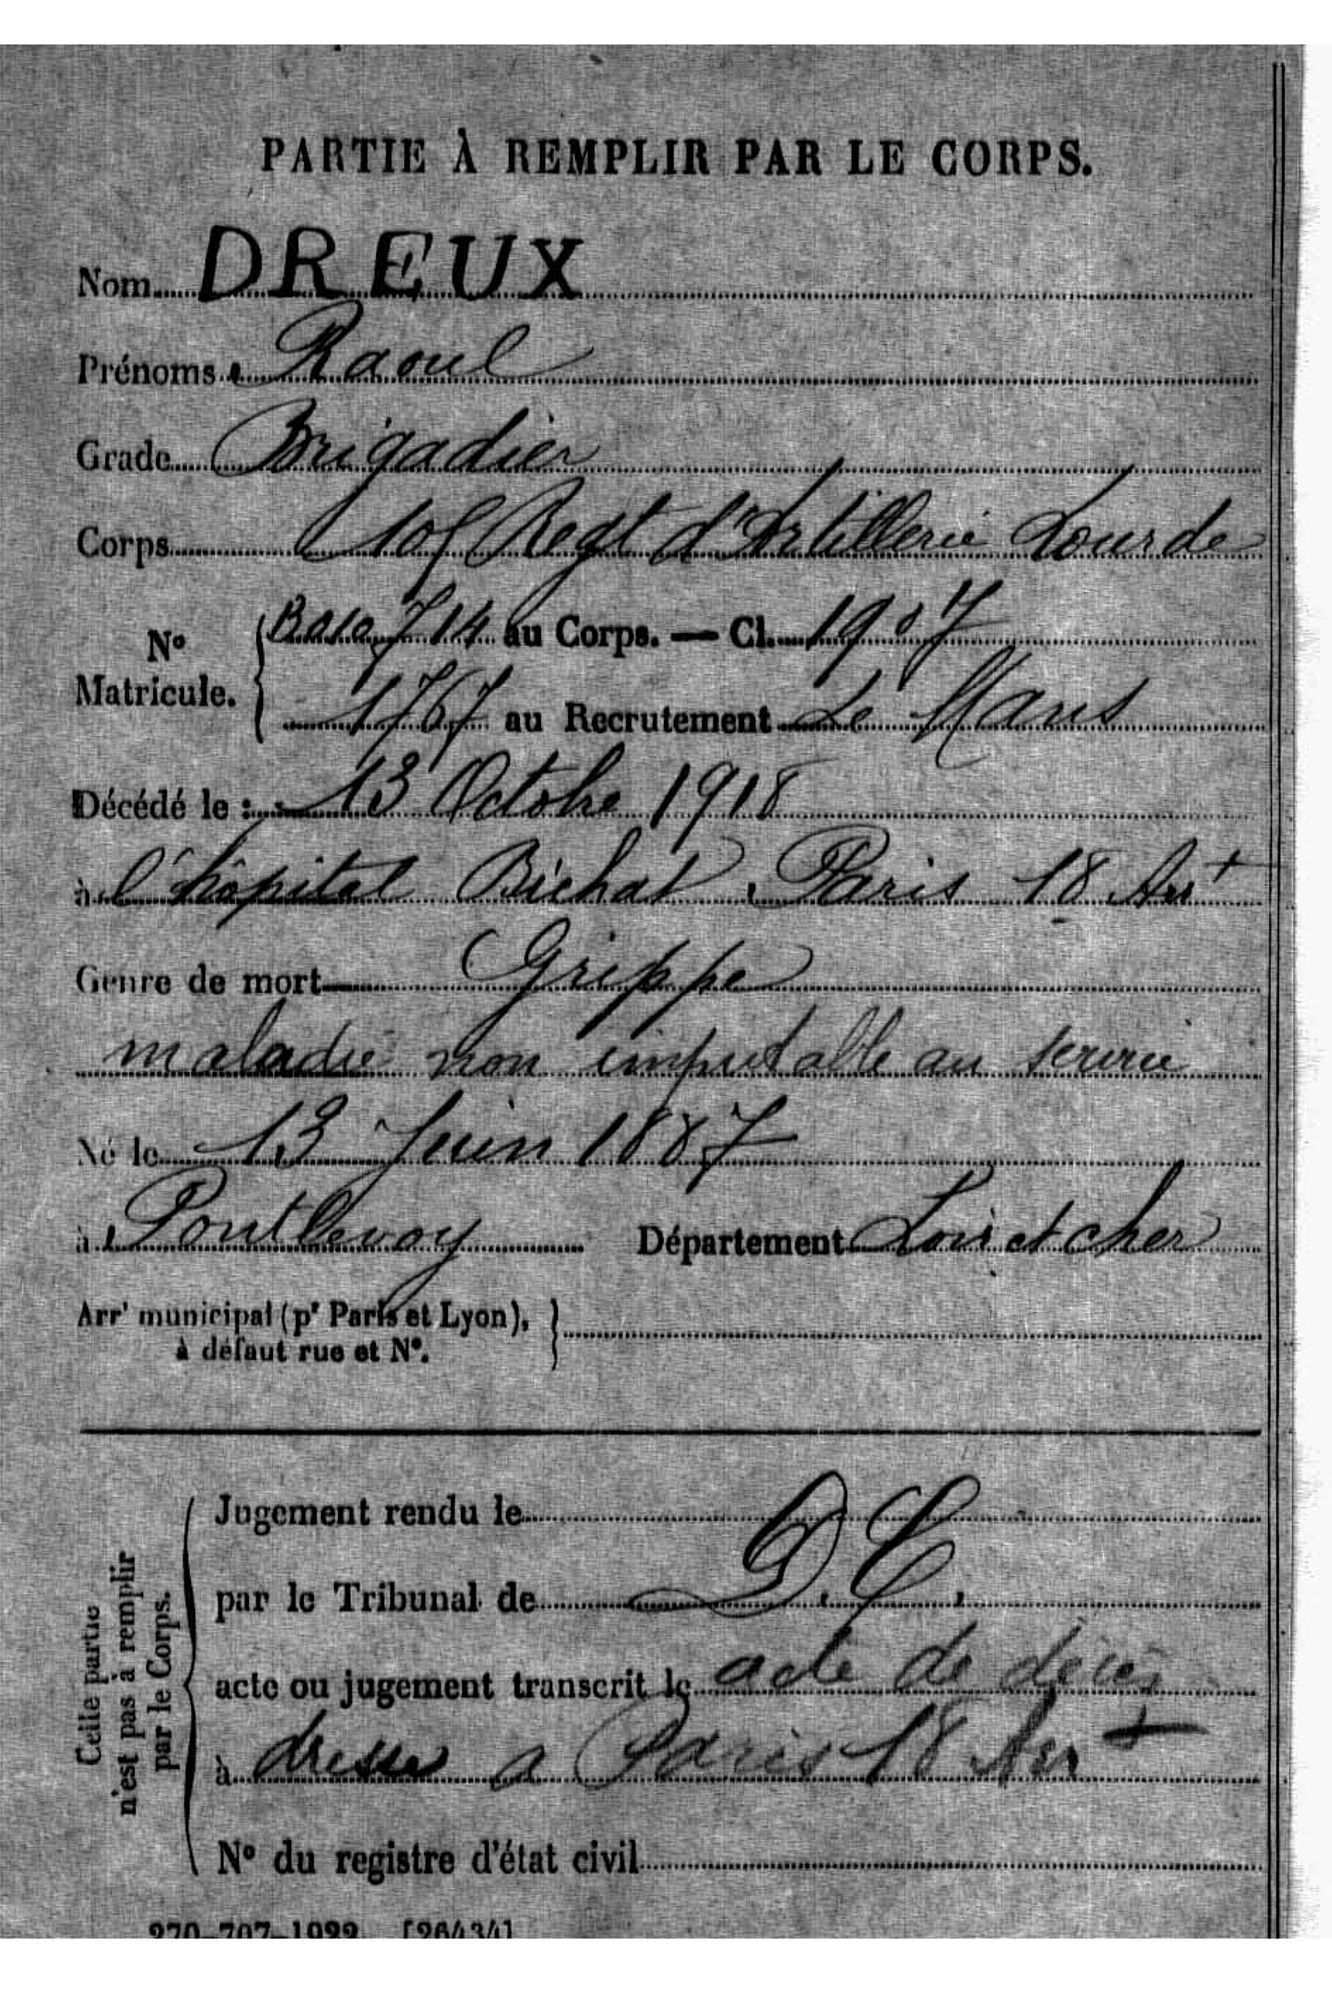 PARTIE À REMPLIR PAR LE CORPS.
Nom DREUX
Prénoms Raoul
Grade Brigadier
Corps Regt d'Artillerie Lourde
No Matricule. 714 au Corps. — Cl. 1907
1767 au Recrutement Le Mans
Décédé le : 13 Octobre 1918
à l'hôpital Bichat, Paris 18 Arrt
Genre de mort Grippe
maladie non imputable au service
Né le 13 Juin 1887
à Pontlevoy Département Loir et cher
Arrt municipal (pr Paris et Lyon),
à défaut rue et No.
Cette partie
n'est pas à remplir
par le Corps.
Jugement rendu le
par le Tribunal de D.C.
acte ou jugement transcrit le acte de décès
à dressé a Paris 18 Arrt
No du registre d'état civil
270-707-1922. [26434]